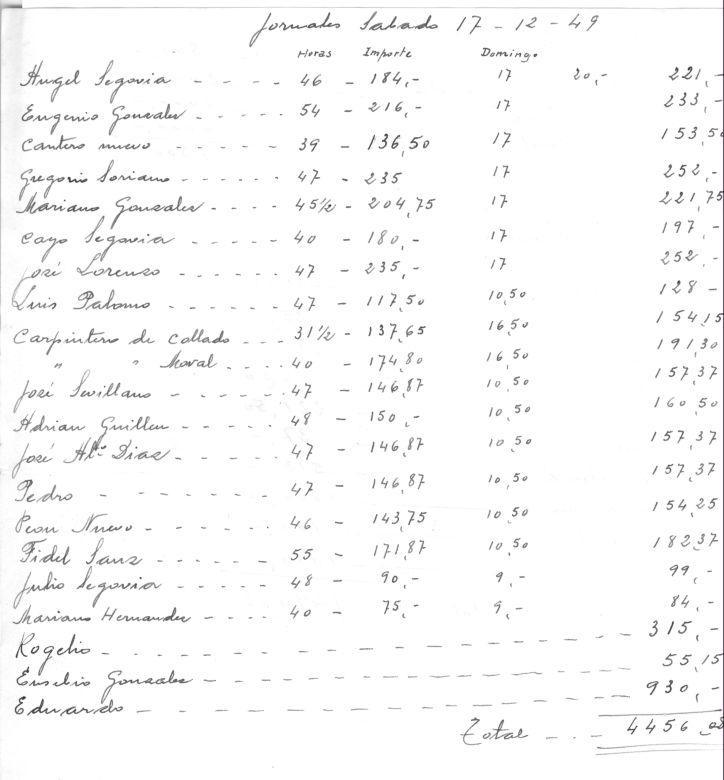 Jornales Sabado 17-12-49
Horas Importe Domingo
Angel Segovia - - - - 46 - 184,- 17 20,- 221,-
Eugenio Gonzalez - - - - - 54 - 216,- 17 233,-
Cantero nuevo - - - - - 39 - 136,50 17 153,50
Gregorio Soriano - - - - 47 - 235 17 252,-
Mariano Gonzalez - - - - 45½ - 204,75 17 221,75
Cayo Segovia - - - - 40 - 180,- 17 197,-
José Lorenzo - - - - - 47 - 235,- 17 252,-
Luis Palomo - - - - - - 47 - 117,50 10,50 128 -
Carpintero de Collado - - - 31½ - 137,65 16,50 154,15
" " Moral - - - - 40 - 174,80 16,50 191,30
José Sevillano - - - - - 47 - 146,87 10,50 157,37
Adrian Guillen - - - - 48 - 150,- 10,50 160,50
José Díaz - - - - - 47 - 146,87 10,50 157,37
Pedro - - - - - - - 47 - 146,87 10,50 157,37
Peon Nuevo - - - - - 46 - 143,75 10,50 154,25
Fidel Sanz - - - - - - 55 - 171,87 10,50 182,37
Julio Segovia - - - - - 48 - 90,- 9,- 99,-
Mariano Hernandez - - - - 40 - 75,- 9,- 84,-
Rogelio - - - - - - - - - - - - - - - - - - - 315,-
Eusebio Gonzalez - - - - - - - - - - - - - - - 55,15
Eduardo - - - - - - - - - - - - - - - - - - 930,-
Total - - - - 4456,08